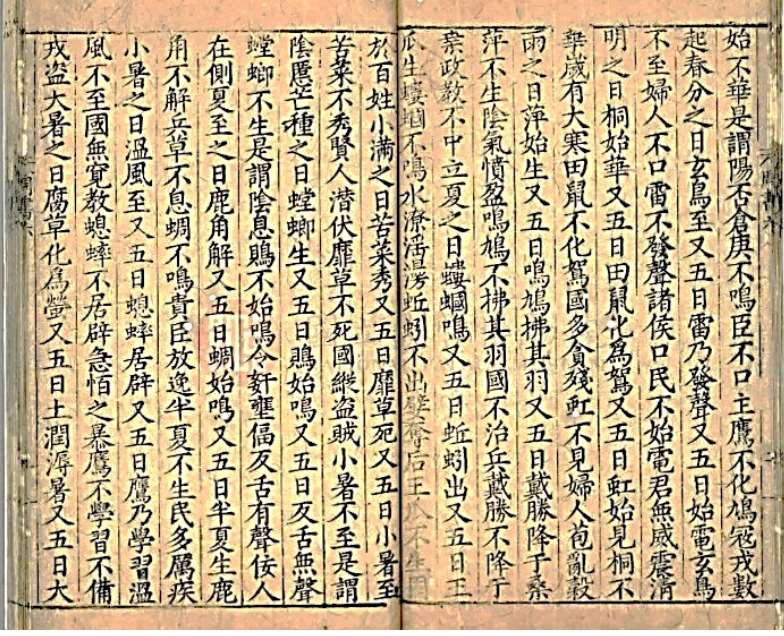 始不華是謂陽否倉庚不鳴臣不口主鷹不化鳩寇戎數
起春分之日玄鳥至又五日雷乃發聲又五日始電玄鳥
不至婦人不口雷不發聲諸侯口民不始電君無威震清
明之日桐始華又五日田鼠化為鴽又五日虹始見桐不
華歲有大寒田鼠不化鴽國多貪殘虹不見婦人苞亂穀
雨之日萍始生又五日鳴鳩拂其羽又五日戴勝降于桑
萍不生陰氣憤盈鳴鳩不拂其羽國不治兵戴勝不降于
桑政教不中立夏之日螻蟈鳴又五日蚯蚓出又五日王
瓜生螻蟈不鳴水潦淫漫蚯蚓不出嬖奪后王瓜不生困
於百姓小滿之日苦菜秀又五日靡草死又五日小暑至
苦菜不秀賢人潛伏靡草不死國縱盜賊小暑不至是謂
陰慝芒種之日螳螂生又五日鵙始鳴又五日反舌無聲
螳螂不生是謂陰息鵙不始鳴令姧壅偪反舌有聲佞人
在側夏至之日鹿角解又五日蜩始鳴又五日半夏生鹿
角不解兵草不息蜩不鳴貴臣放逸半夏不生民多厲疾
小暑之日溫風至又五日蟋蟀居辟又五日鷹乃學習溫
風不至國無寬教蟋蟀不居辟急恆之暴鷹不學習不備
戎盜大暑之日腐草化為螢又五日土潤溽暑又五日大